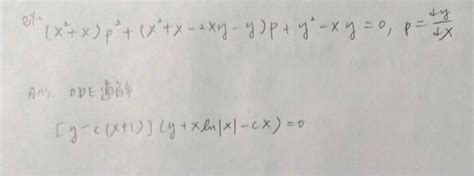 ex. (x²+x)p²+(x²+x-2xy-y)p+y²-xy=0, p=dy/dx
Ans. ODE通解
[y-c(x+1)](y+xln|x|-cx)=0